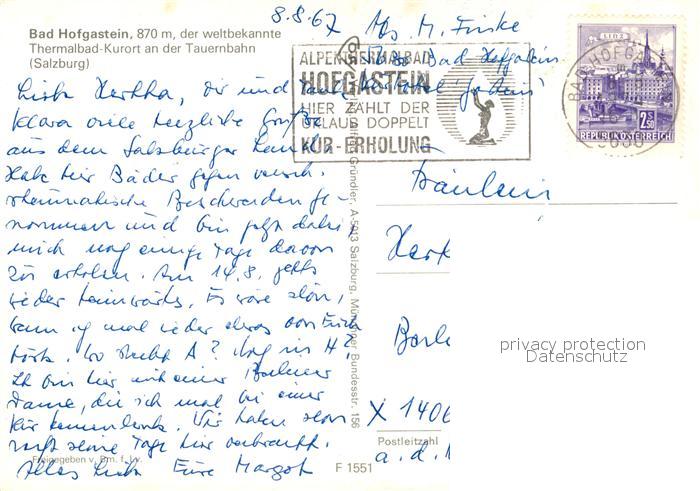 Bad Hofgastein, 870 m, der weltbekannte
Thermalbad-Kurort an der Tauernbahn
(Salzburg)
8.8.67
Abs. M. Finske
Bad Hofgastein
ALPENTHERMALBAD
HOFGASTEIN
HIER ZÄHLT DER
URLAUB DOPPELT
KUR-ERHOLUNG
LINZ
2.50
REPUBLIK ÖSTERREICH
BAD HOFG
Liebe Hertha, Dir und Tante
Klara viele herzliche Grüße
aus dem Salzburger Land.
Habe hier Bäder gegen versch.
rheumatische Beschwerden ge-
nommen und bin jetzt dabei,
mich noch einige Tage davon
zu erholen. Am 14.8. geht's
wieder heimwärts. Es wäre schön,
wenn ich mal wieder etwas von Euch
hörte. Wo steckt A? Noch in H?
Ich bin hier mit einer Berliner
Dame, die ich mal bei einer
Kur kennenlernte. Wir haben schon
recht schöne Tage hier verbracht.
Alles Liebe Eure Margot
Freigegeben v. Bm. f. Lv.
F 1551
Gründler, A-5013 Salzburg, Münchner Bundesstr. 156
Fräulein
Hert
Berl
X 1406
Postleitzahl
a.d.
privacy protection
Datenschutz